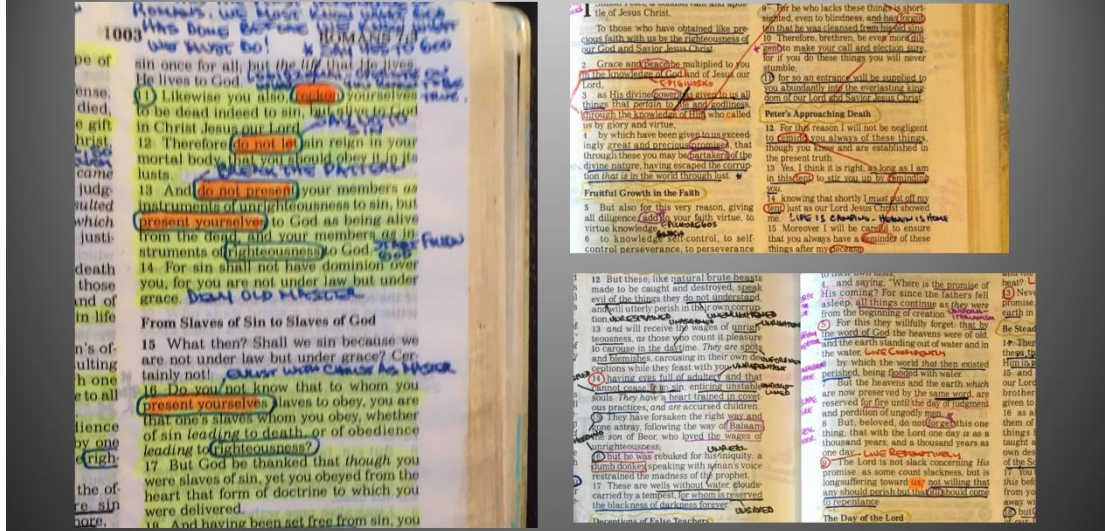 1003
ROMANS 7:3
ROMANS, WE MUST KNOW WHAT GOD
HAS DONE BEFORE
WE MUST DO!
pe of
ense.
died,
e gift
hrist,
came
judg-
sulted
which
justi-
death
those
and of
in life
n's of-
ulting
h one
e to all
dience
by one
e righ-
the of-
re sin
more,
sin once for all; but the life that He lives,
He lives to God.
11 Likewise you also, reckon yourselves
to be dead indeed to sin, but alive to God
in Christ Jesus our Lord.
12 Therefore do not let sin reign in your
mortal body, that you should obey it in its
lusts.
BREAK THE PATTERN
13 And do not present your members as
instruments of unrighteousness to sin, but
present yourselves to God as being alive
from the dead, and your members as in-
struments of righteousness to God.
14 For sin shall not have dominion over
you, for you are not under law but under
grace. DENY OLD MASTER
From Slaves of Sin to Slaves of God
15 What then? Shall we sin because we
are not under law but under grace? Cer-
tainly not! ENLIST WITH CHRIST AS MASTER
16 Do you not know that to whom you
present yourselves slaves to obey, you are
that one's slaves whom you obey, whether
of sin leading to death, or of obedience
leading to righteousness?
17 But God be thanked that though you
were slaves of sin, yet you obeyed from the
heart that form of doctrine to which you
were delivered.
18 And having been set free from sin, you
tle of Jesus Christ,
To those who have obtained like pre-
cious faith with us by the righteousness of
our God and Savior Jesus Christ:
2 Grace and peace be multiplied to you
in the knowledge of God and of Jesus our
Lord,
EPIGINOSKO
3 as His divine power has given to us all
things that pertain to life and godliness,
through the knowledge of Him who called
us by glory and virtue,
4 by which have been given to us exceed-
ingly great and precious promises, that
through these you may be partakers of the
divine nature, having escaped the corrup-
tion that is in the world through lust.
Fruitful Growth in the Faith
5 But also for this very reason, giving
all diligence, add to your faith virtue, to
virtue knowledge,
6 to knowledge self-control, to self-
control perseverance, to perseverance
9 For he who lacks these things is short-
sighted, even to blindness, and has forgot-
ten that he was cleansed from his old sins.
10 Therefore, brethren, be even more dili-
gent to make your call and election sure,
for if you do these things you will never
stumble;
11 for so an entrance will be supplied to
you abundantly into the everlasting king-
dom of our Lord and Savior Jesus Christ.
Peter's Approaching Death
12 For this reason I will not be negligent
to remind you always of these things,
though you know and are established in
the present truth.
13 Yes, I think it is right, as long as I am
in this tent, to stir you up by reminding
you,
14 knowing that shortly I must put off my
tent, just as our Lord Jesus Christ showed
me. LIFE IS CAMPING - HEAVEN IS HOME
15 Moreover I will be careful to ensure
that you always have a reminder of these
things after my decease.
12 But these, like natural brute beasts
made to be caught and destroyed, speak
evil of the things they do not understand,
and will utterly perish in their own corrup-
tion,
13 and will receive the wages of unrigh-
teousness, as those who count it pleasure
to carouse in the daytime. They are spots
and blemishes, carousing in their own de-
ceptions while they feast with you,
14 having eyes full of adultery and that
cannot cease from sin, enticing unstable
souls. They have a heart trained in covet-
ous practices, and are accursed children.
15 They have forsaken the right way and
gone astray, following the way of Balaam
the son of Beor, who loved the wages of
unrighteousness;
16 but he was rebuked for his iniquity: a
dumb donkey speaking with a man's voice
restrained the madness of the prophet.
17 These are wells without water, clouds
carried by a tempest, for whom is reserved
the blackness of darkness forever.
UNSAVED
Deceptions of False Teachers
4 and saying, "Where is the promise of
His coming? For since the fathers fell
asleep, all things continue as they were
from the beginning of creation."
5 For this they willfully forget: that by
the word of God the heavens were of old,
and the earth standing out of water and in
the water, LIVE CONFIDENTLY
6 by which the world that then existed
perished, being flooded with water.
7 But the heavens and the earth which
are now preserved by the same word, are
reserved for fire until the day of judgment
and perdition of ungodly men.
8 But, beloved, do not forget this one
thing, that with the Lord one day is as a
thousand years, and a thousand years as
one day.
9 The Lord is not slack concerning His
promise, as some count slackness, but is
longsuffering toward us, not willing that
any should perish but that all should come
to repentance.
The Day of the Lord